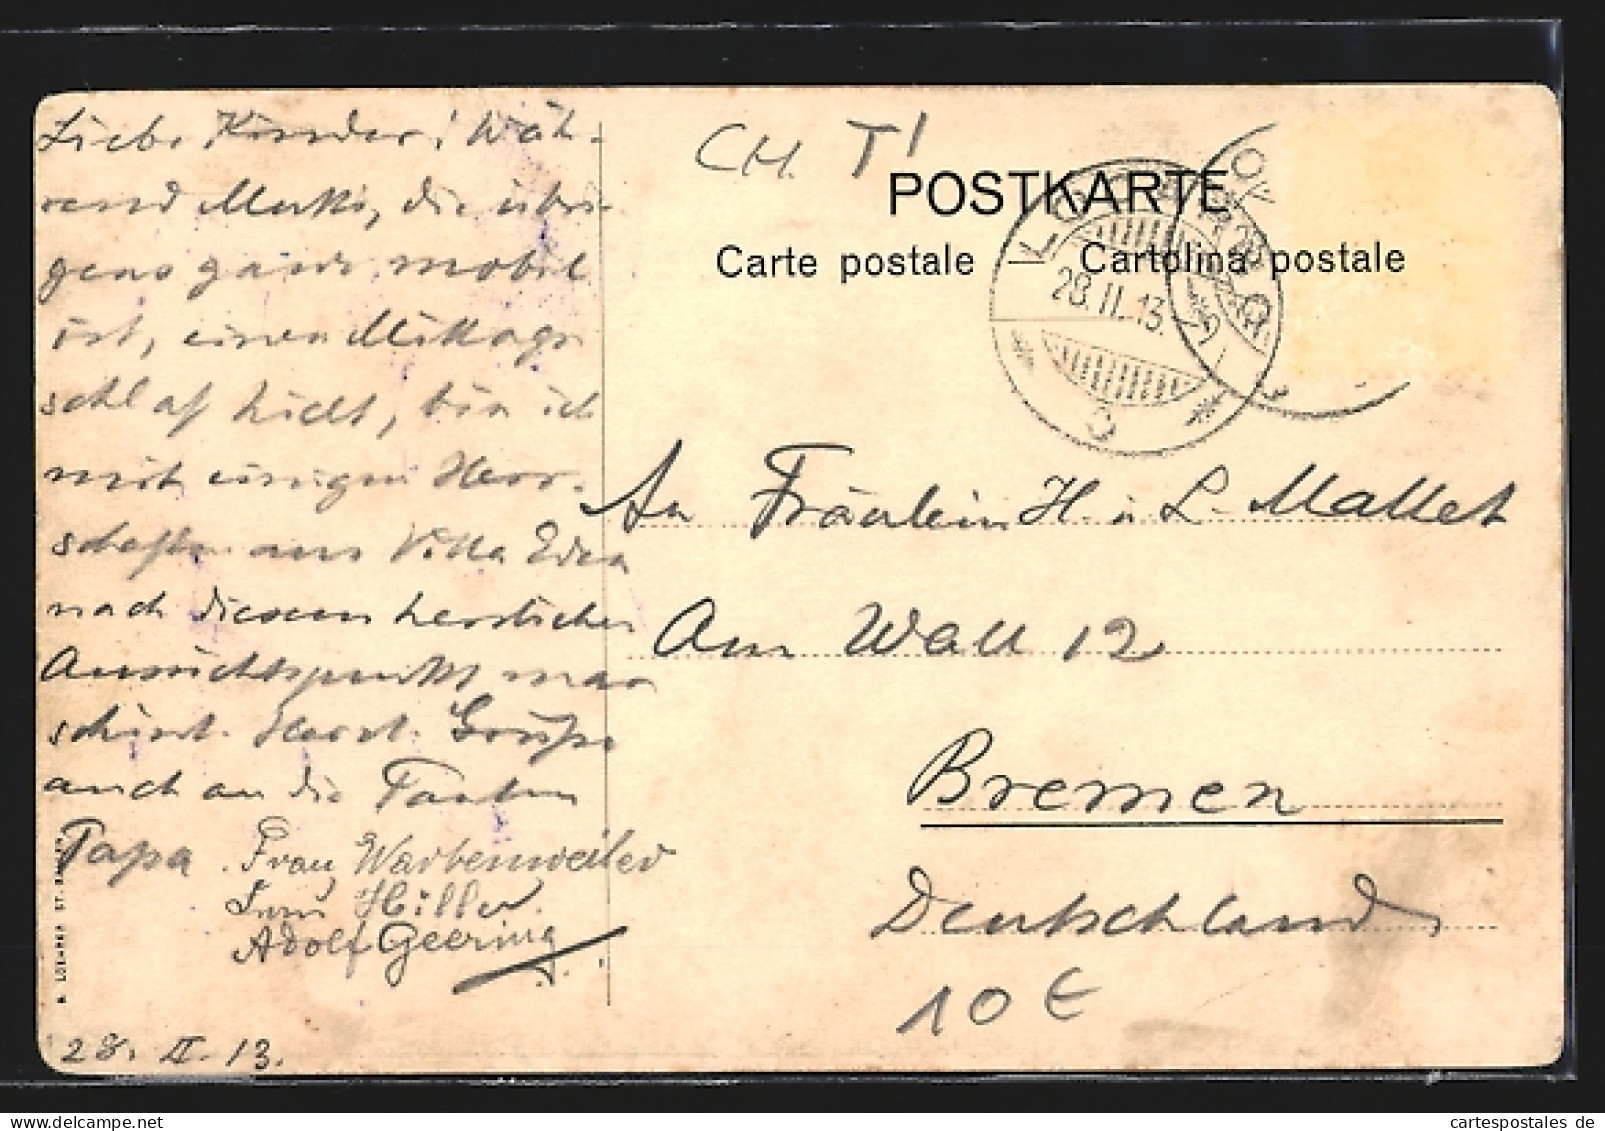 Liebe Kinder! Wäh-
rend Mutti, die übri-
gens ganz mobil
ist, einen Mittags
schlaf hielt, bin ich
mit einigen Herr-
schaften aus Villa Eden
nach diesem herrlichen
Aussichtspunkt mar
schirt. Herzl. Grüße
auch an die Tanten
Papa
Frau Warbenweiler
Frau Hiller.
Adolf Geering
28. II. 13.
CH. TI
POSTKARTE
Carte postale Cartolina postale
28.II.13
An Fräulein H. u L. Mallet
Am Wall 12
Bremen
Deutschland
10 €
cartespostales de